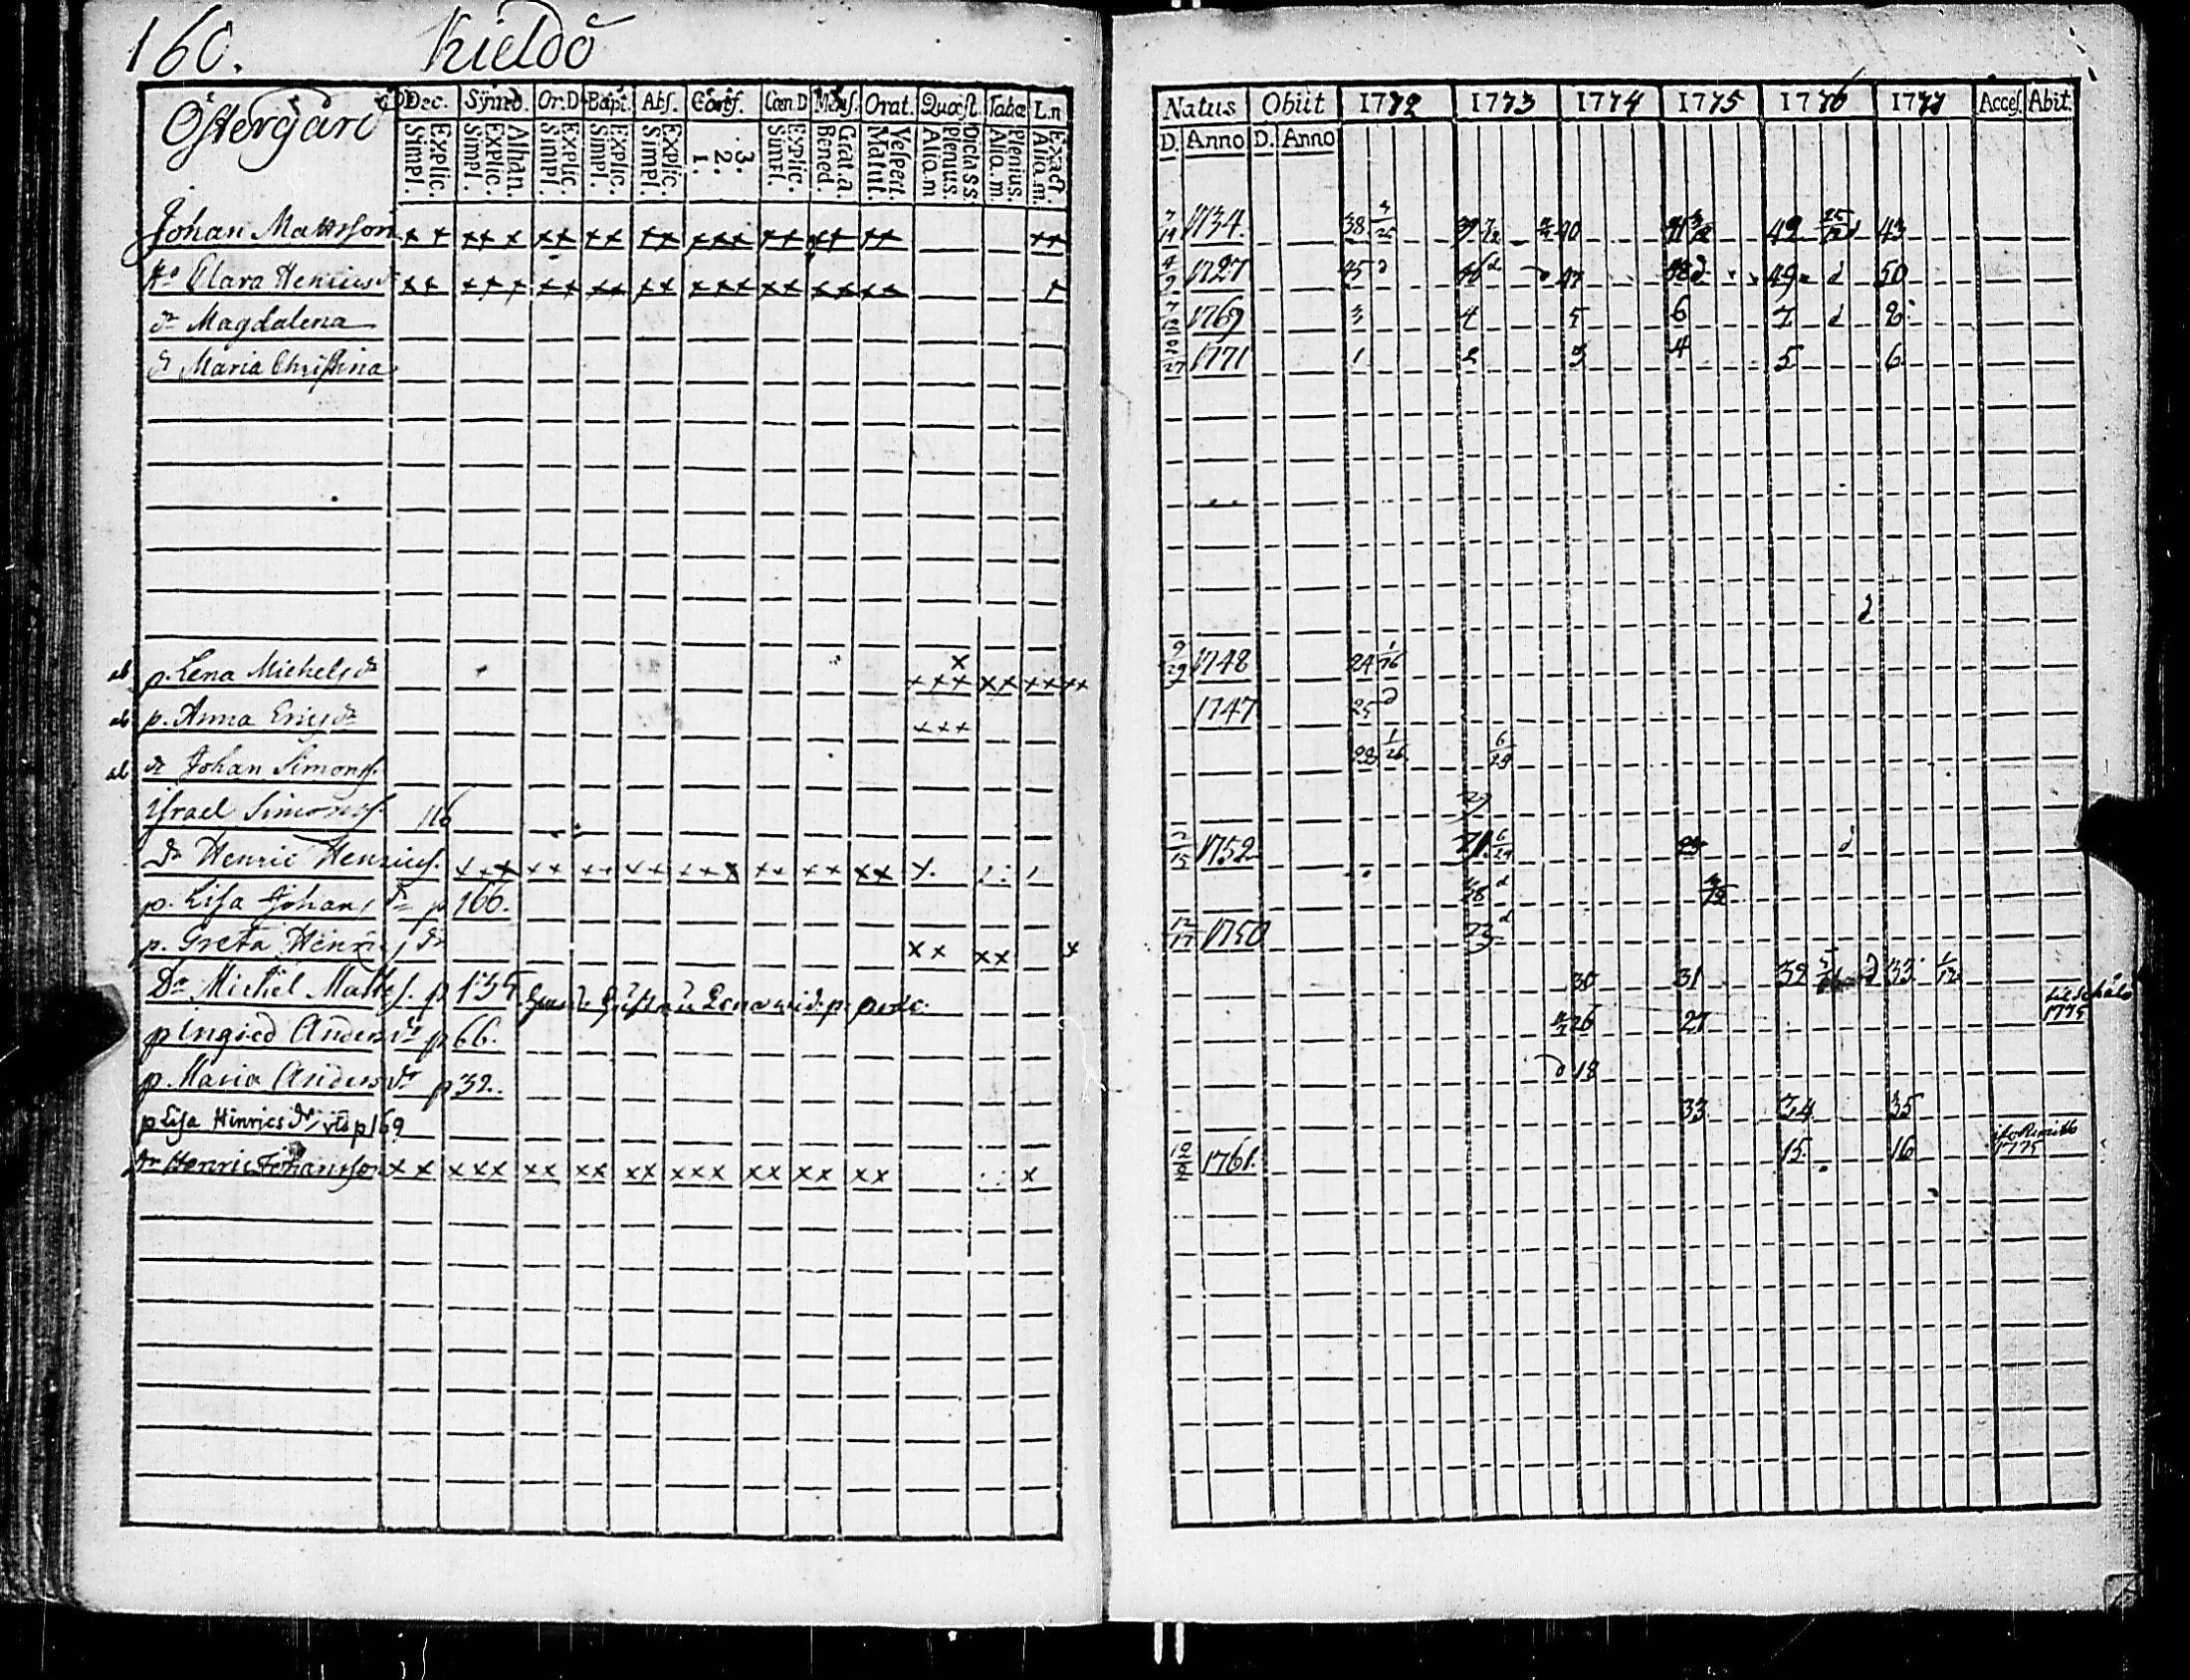 160. Kieldö
Östergård Dec. Symb. Or.D Bapt. Abs. Conf. Cœn D Mens. Orat. Quæst. Tabæ L.n
Simpl. Explic. Simpl. Explic. Athan. Simpl. Explic. Simpl. Explic. Simpl. Explic. 1. 2. 3. Simpl. Explic. Bened. Grat.a. Matut. Vespert. Aliq.m Plenius. Dicta s.s. Aliq.m. Plenius. Aliq.m. Exact.
Johan Mattsson x x x x x x x x x x x x x x x x x x x x x
ho Clara Henricsdr x x x x x x x x x x x x x x x x x x x x
dr Magdalena
dr Maria Christina
ab p. Lena Michelsdr x x x x x x x x x x
ab p. Anna Ericsdr x x x
ab dr Johan Simonss.
Israel Simonss. 116
dr Henric Henrics. x x x x x x x x x x x x x x x x x x x
p. Lisa Johansdr p 166.
p. Greta Henricsdr x x x x x
Dr Michel Matts. p 135.
p Ingied Andersdr p 66.
p. Maria Andersdr p 32.
p Lisa Hinricsdr, vid p 169
dr Henric Johansson x x x x x x x x x x x x x x x x x x x x x
Natus Obiit 1772 1773 1774 1775 1776 1777 Acces. Abit.
D. Anno D. Anno
7/19 1734. 38 3/25 39 40 41 42 43
4/9 1727 45 d 46 d 47 48 d 49 d 50
7/12 1769 3 4 5 6 7 d 8
1771 1 2 3 4 5 6
d
9/29 1748 24 1/26
1747 25 d
22 1/26 6/29
29
2/15 1752 21. 6/29 23 d
28 d
12/17 1750 23 d
30 31 32 d 33
26 27 1775
d 18
33 34 35
12/2 1761. 15. 16 1775